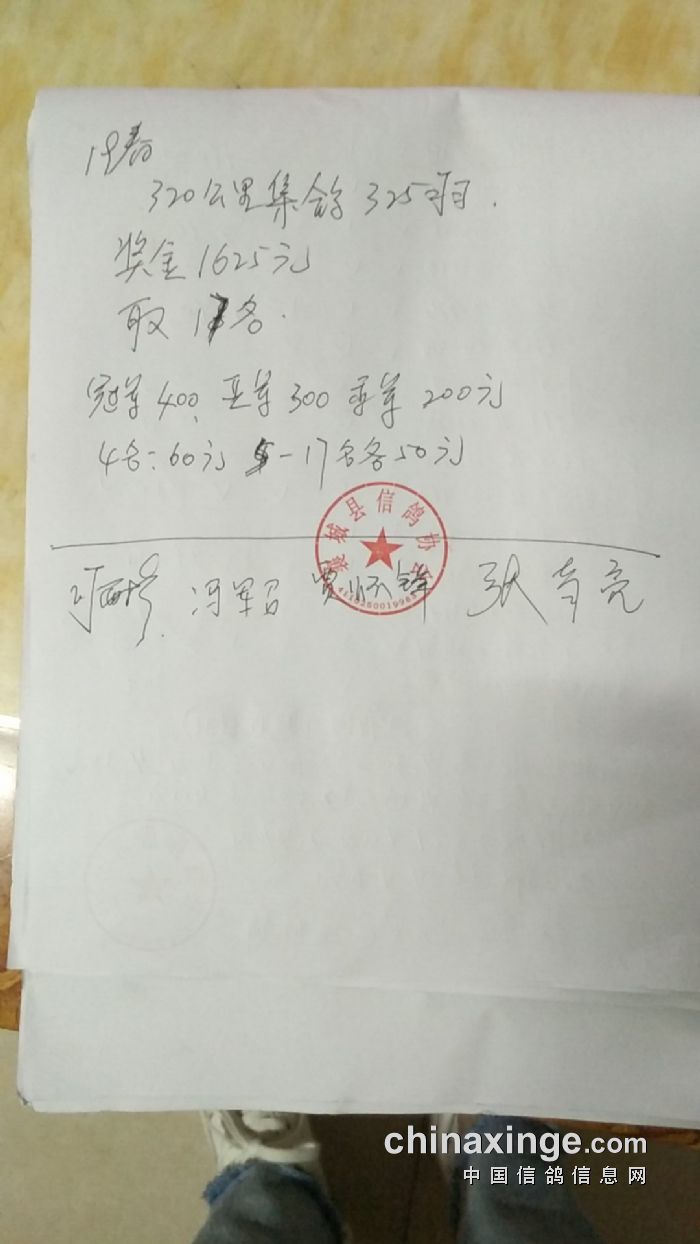 19春
320公里集鸽325羽.
奖金1625元
取17名.
冠军400、亚军300季军200元
4名:60元 5-17名各50元
襄城县信鸽协会
冯军召 贾炳锋 张育亮
chinaxinge.com
中国信鸽信息网